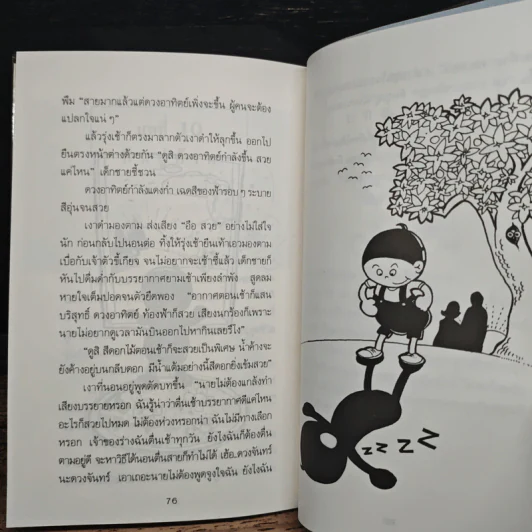 พึม "สายมากแล้วแต่ดวงอาทิตย์เพิ่งจะขึ้น ผู้คนจะต้อง
แปลกใจแน่ ๆ"
แล้วรุ่งเช้าก็ตรงมาลากตัวเงาดำให้ลุกขึ้น ออกไป
ยืนตรงหน้าต่างด้วยกัน "ดูสิ ดวงอาทิตย์กำลังขึ้น สวย
แค่ไหน" เด็กชายชี้ชวน
ดวงอาทิตย์กำลังแดงก่ำ เฉดสีของฟ้ารอบ ๆ ระบาย
สีอุ่นจนสวย
เงาดำมองตาม ส่งเสียง "อือ สวย" อย่างไม่ใส่ใจ
นัก ก่อนกลับไปนอนต่อ ทิ้งให้รุ่งเช้ายืนเท้าเอวมองตาม
เบื่อกับเจ้าตัวขี้เกียจ จนไม่อยากจะเซ้าซี้แล้ว เด็กชายก็
หันไปดื่มด่ำกับบรรยากาศยามเช้าเพียงลำพัง สูดลม
หายใจเต็มปอดจนตัวยืดพอง "อากาศตอนเช้าก็แสน
บริสุทธิ์ ดวงอาทิตย์ ท้องฟ้าก็สวย เสียงนกร้องก็เพราะ
นายไม่อยากดูเวลามันบินออกไปหากินเลยรึไง"
"ดูสิ สีดอกไม้ตอนเช้าก็จะสวยเป็นพิเศษ น้ำค้างจะ
ยังค้างอยู่บนกลีบดอก มีน้ำแต้มอย่างนี้สีดอกยิ่งเข้มสวย"
เงาที่นอนอยู่พูดตัดบทขึ้น "นายไม่ต้องแกล้งทำ
เสียงบรรยายหรอก ฉันรู้น่าว่าตื่นเช้าบรรยากาศดีแค่ไหน
อะไรก็สวยไปหมด ไม่ต้องห่วงหรอกน่า ฉันไม่มีทางเลือก
หรอก เจ้าของร่างฉันตื่นเช้าทุกวัน ยังไงฉันก็ต้องตื่น
ตามอยู่ดี จะหาวิธีได้นอนตื่นสายก็ทำไม่ได้ เฮ้อ..ดวงจันทร์
นะดวงจันทร์ เอาเถอะนายไม่ต้องพูดจูงใจฉัน ยังไงฉัน
76
z z Z Z